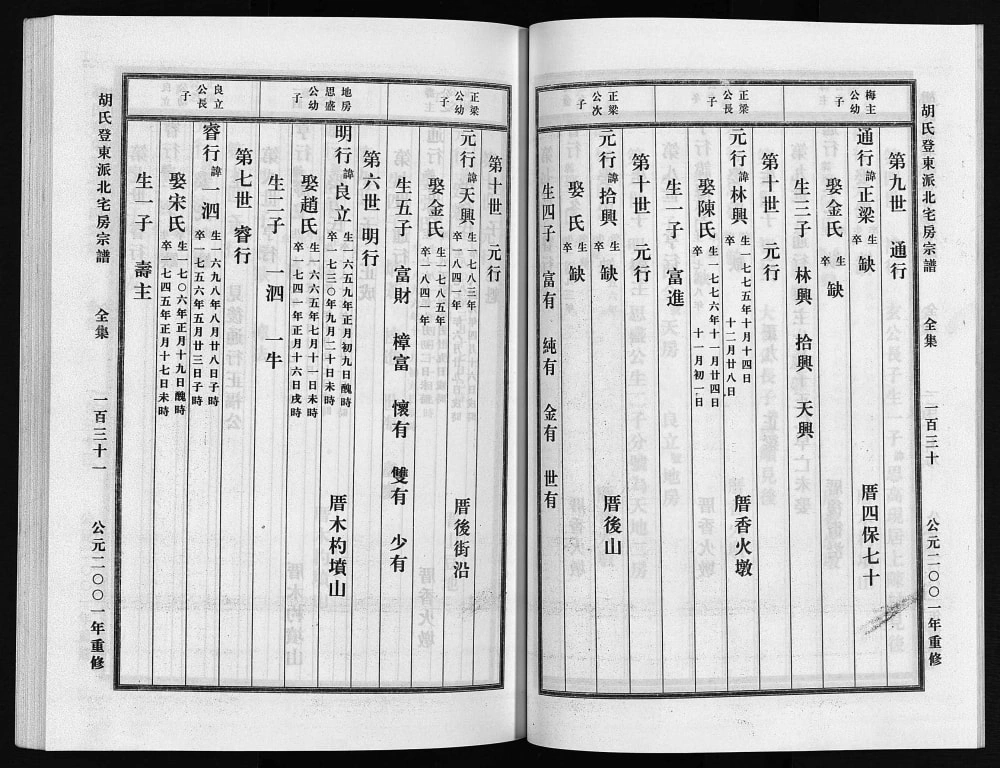 胡氏登東派北宅房宗譜 全集 一百三十 公元二〇〇一年重修
梅主公幼子
第九世 通行
通行諱正梁 生卒缺 厝四保七十
娶金氏 生卒缺
生三子 林興 拾興 天興
正梁公長子
第十世 元行
元行諱林興 生一七七五年十月十四日 卒 十二月廿八日 厝香火墩
娶陳氏 生一七七六年十一月廿四日 卒 十一月初一日
生一子 富進
正梁公次子
第十世 元行
元行諱拾興 生卒缺 厝後山
娶 氏 生卒缺
生四子 富有 純有 金有 世有
正梁公幼子
第十世 元行
元行諱天興 生一七八三年 卒一八四一年 厝後街沿
娶金氏 生一七八五年 卒一八四一年
生五子 富財 樟富 懷有 雙有 少有
地房思盛公幼子
第六世 明行
明行諱良立 生一六五九年正月初九日醜時 卒一七三〇年九月二十日未時 厝木杓墳山
娶趙氏 生一六六五年七月十一日未時 卒一七四一年正月十六日戌時
生二子 一泗 一牛
良立公長子
第七世 睿行
睿行諱一泗 生一六九八年八月廿八日子時 卒一七五六年五月廿三日子時
娶宋氏 生一七〇六年正月十九日醜時 卒一七四五年正月十七日未時
生一子 壽主
胡氏登東派北宅房宗譜 全集 一百三十一 公元二〇〇一年重修